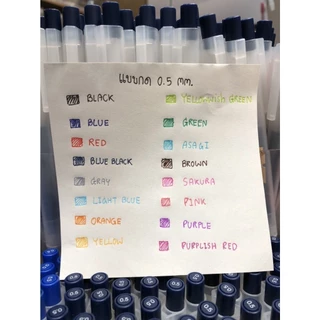 แบบกด 0.5 มม.
BLACK
BLUE
RED
BLUE BLACK
GRAY
LIGHT BLUE
ORANGE
YELLOW
YELLOWISH GREEN
GREEN
ASAGI
BROWN
SAKURA
PINK
PURPLE
PURPLISH RED
0.5
0.5
0.5
0.5
0.5